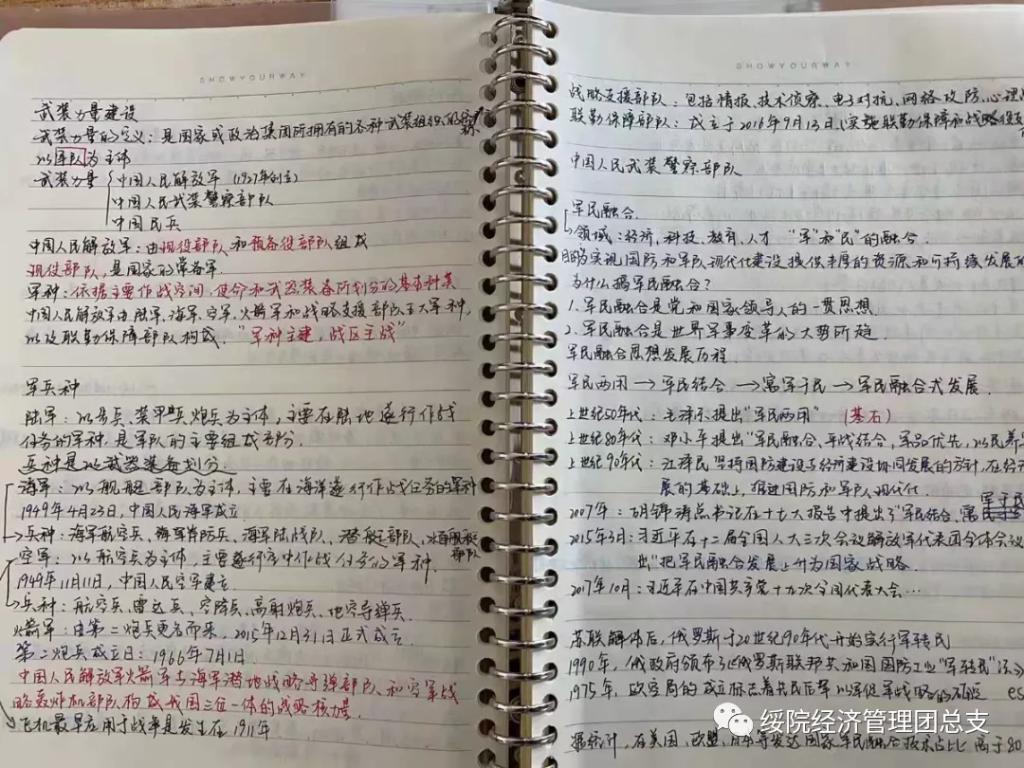 SHOWYOURWAY
武装力量建设
武装力量的定义：是国家或政治集团所拥有的各种武装组织的
以军队为主体
武装力量 中国人民解放军（1927年创立）
中国人民武装警察部队
中国民兵
中国人民解放军：由现役部队和预备役部队组成
现役部队，是国家的常备军
军种：依据主要作战空间、使命和武器装备所划分的基本种类
中国人民解放军由陆军、海军、空军、火箭军和战略支援部队五大军种，
以及联勤保障部队构成. "军种主建，战区主战"
军兵种
陆军：以步兵、装甲兵、炮兵为主体，主要在陆地遂行作战
任务的军种，是军队的主要组成部分.
兵种是以武器装备划分.
海军：以舰艇部队为主体，主要在海洋遂行作战任务的军种
1949年4月23日，中国人民海军成立
兵种：海军航空兵、海军岸防兵、海军陆战队、潜艇部队、水面舰艇部队
空军：以航空兵为主体，主要遂行空中作战任务的军种.
1949年11月11日，中国人民空军建立
兵种：航空兵、雷达兵、空降兵、高射炮兵、地空导弹兵
火箭军：由第二炮兵更名而来，2015年12月31日正式成立
第二炮兵成立日：1966年7月1日
中国人民解放军火箭军与海军潜地战略导弹部队和空军战
略轰炸机部队构成我国三位一体的战略核力量.
飞机最早应用于战争是发生在1911年
SHOWYOURWAY
战略支援部队：包括情报、技术侦察、电子对抗、网络攻防、心理
联勤保障部队：成立于2016年9月13日，实施联勤保障和战略
中国人民武装警察部队
军民融合.
领域：经济、科技、教育、人才 "军"和"民"的融合.
目的：为实现国防和军队现代化建设提供丰厚的资源和可持续发展的
为什么搞军民融合？
1.军民融合是党和国家领导人的一贯思想.
2.军民融合是世界军事变革的大势所趋
军民融合思想发展历程.
军民两用→军民结合→寓军于民→军民融合式发展.
上世纪50年代：毛泽东提出"军民两用" （基石）
上世纪80年代：邓小平提出"军民融合、平战结合，军品优先，以民养
上世纪90年代：江泽民坚持国防建设与经济建设协同发展的方针，在经济
展的基础上，推进国防和军队现代化.
2007年：胡锦涛总书记在十七大报告中提出了"军民结合，寓军于民
2015年3月：习近平在十二届全国人大三次会议解放军代表团全体会议
出"把军民融合发展上升为国家战略.
2017年10月：习近平在中国共产党十九次全国代表大会…
苏联解体后，俄罗斯于20世纪90年代开始实行军转民
1990年，俄政府颁布了《俄罗斯联邦共和国国防工业"军转民"法》
1975年，欧空局的成立标志着
据统计，在美国、欧盟、日本等发达国家军民融合技术占比高于80
绥院经济管理团总支